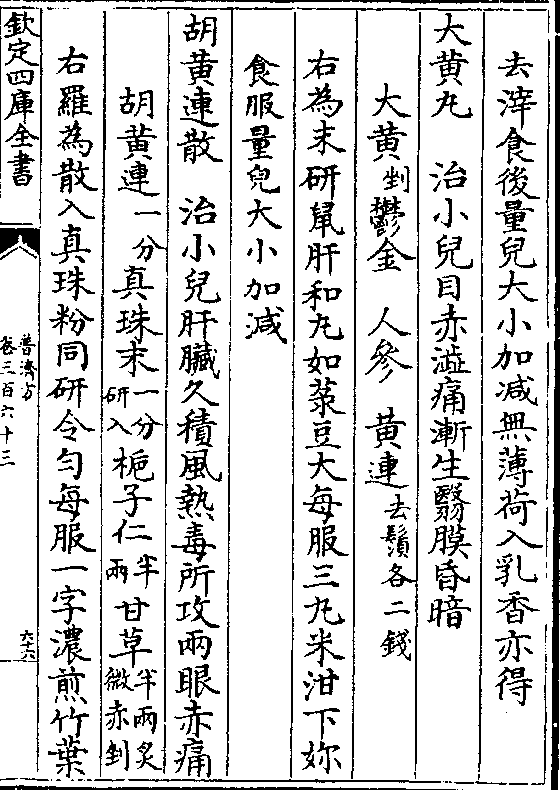 去滓食後量兒大小加减無薄荷入乳香亦得
大黄丸 治小兒目赤澁痛漸生翳膜昏暗
大黄剉鬱金 人參 黄連去鬚各二錢
右為末研䑕肝和丸如菉豆大每服三丸米泔下妳
食服量兒大小加减
胡黄連散 治小兒肝臟久積風熱毒所攻兩眼赤痛
胡黄連一分真珠末一分研入梔子仁半兩甘草半兩炙微赤剉
右羅為散入真珠粉同研令匀每服一字濃煎竹葉
欽定四庫全書
普濟方
卷三百六十三
六十六